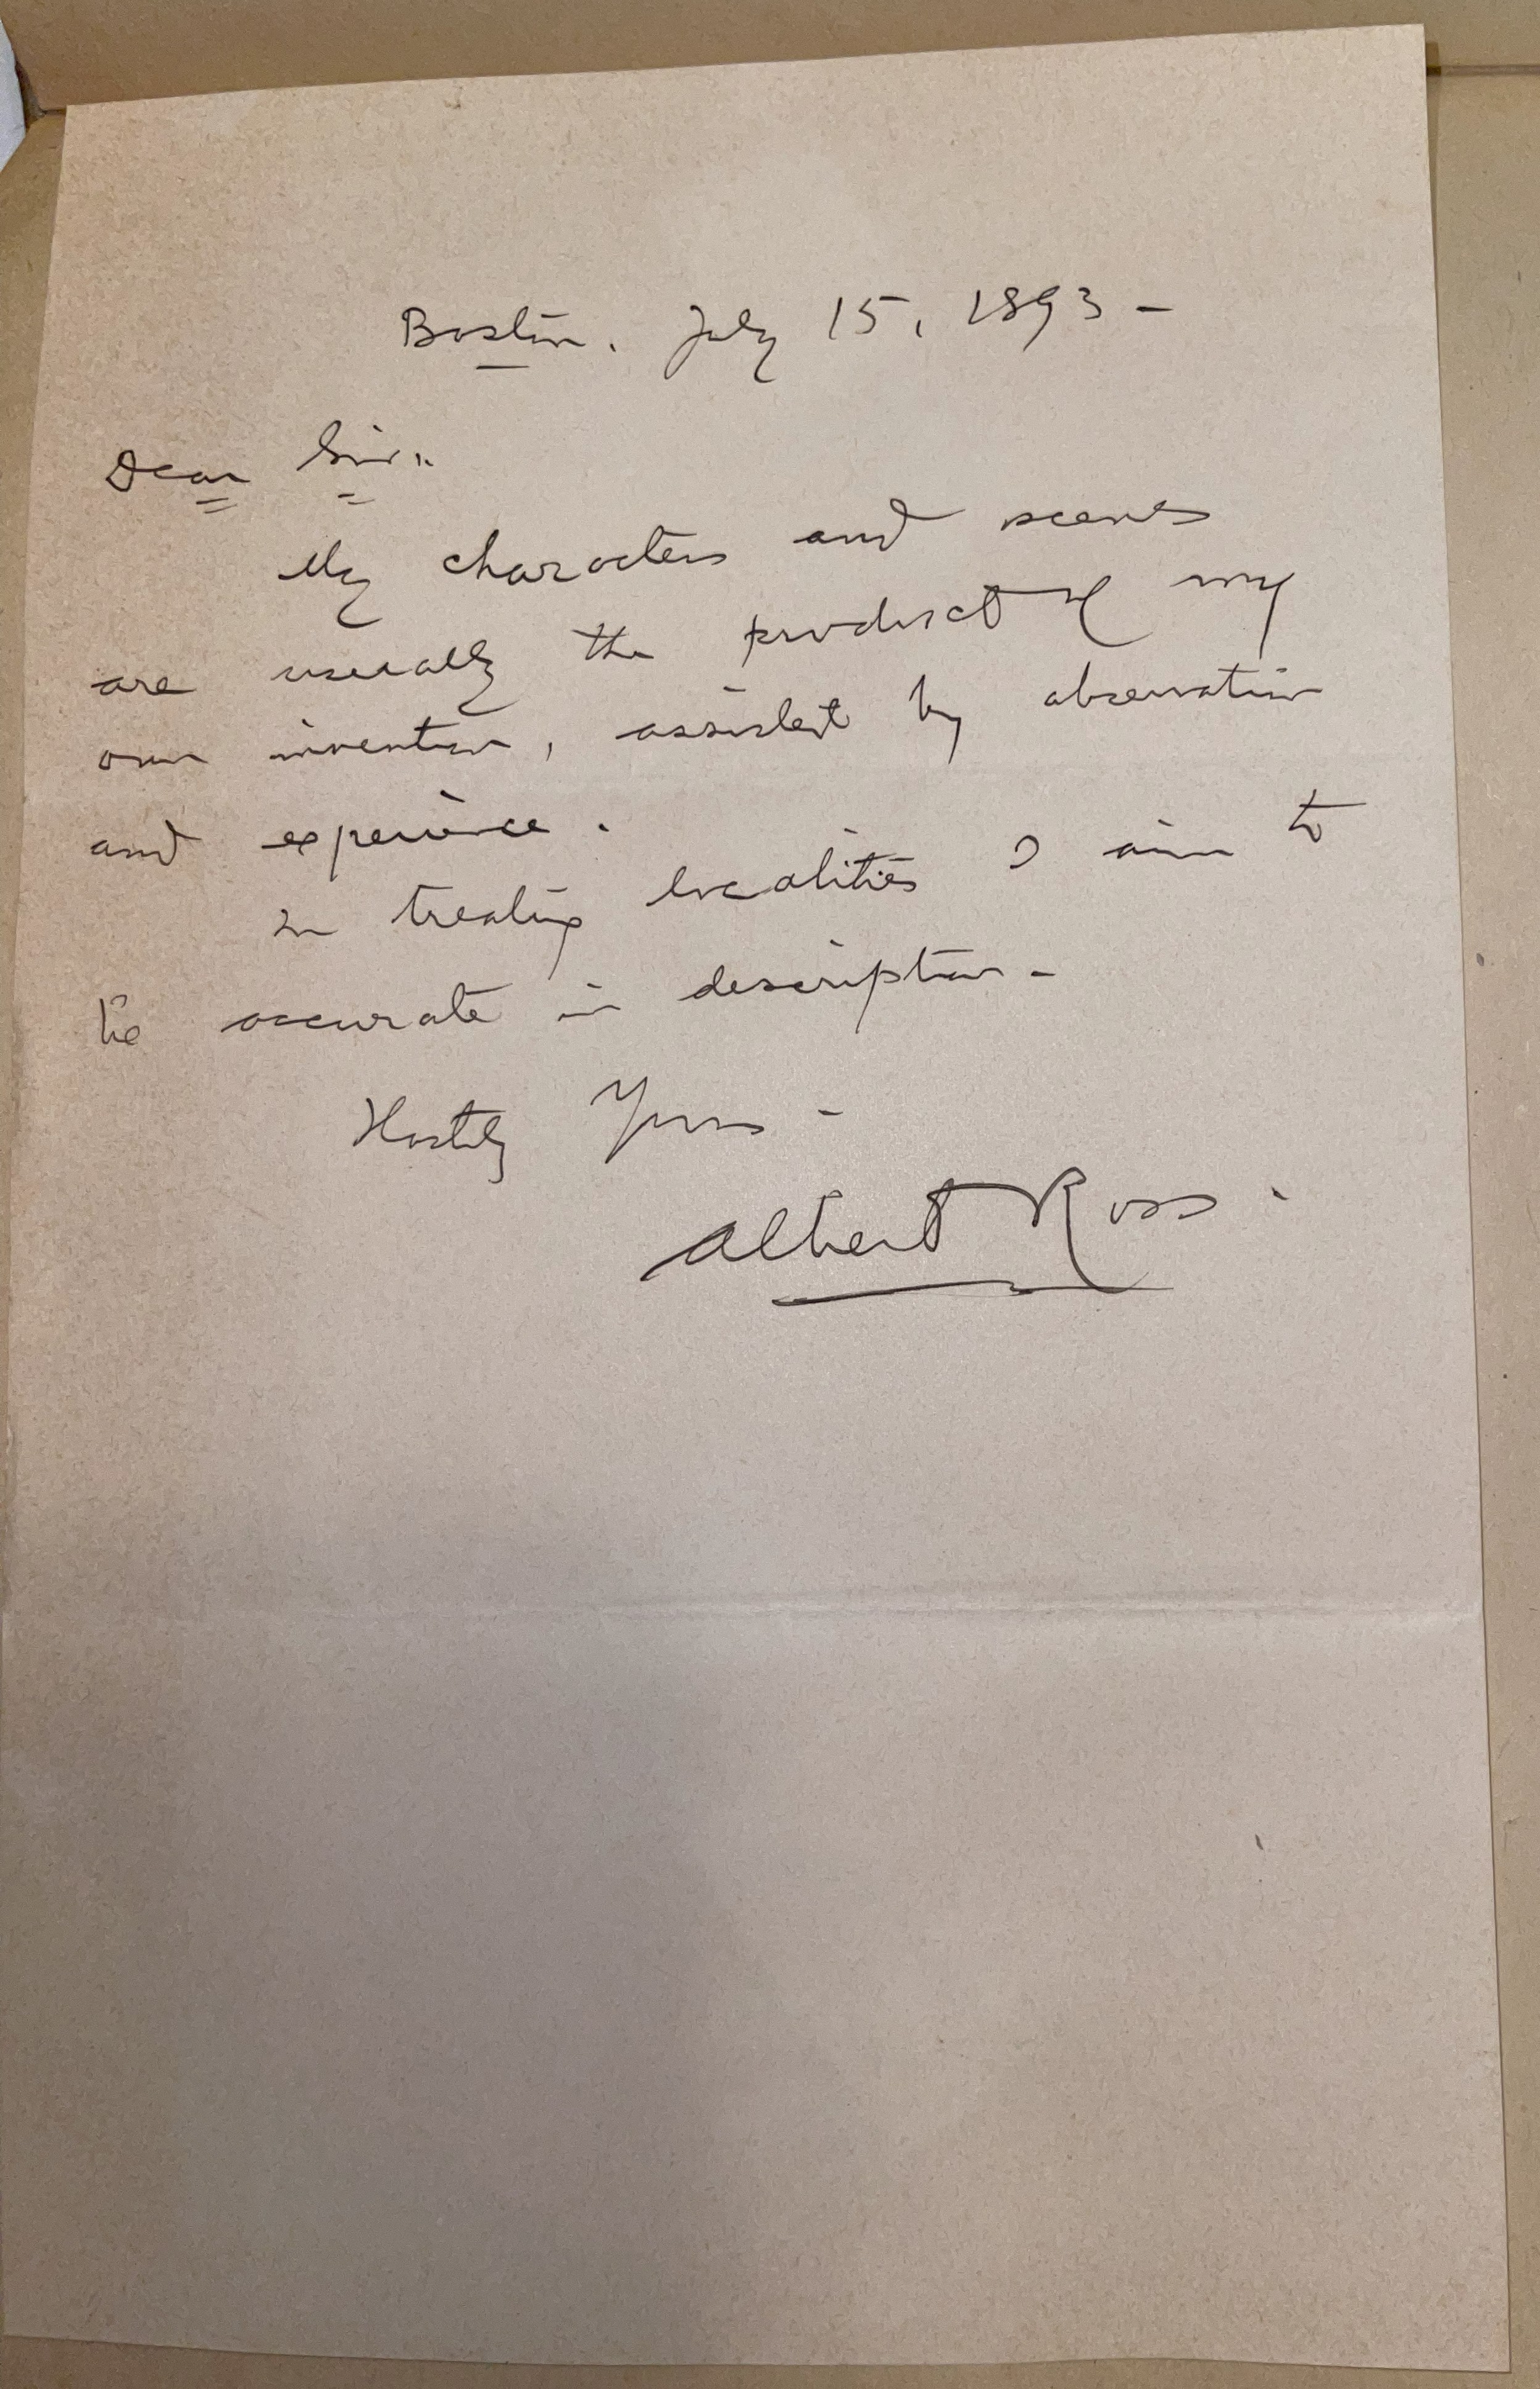 Boston. July 15, 1893 -
Dear Sir:
My characters and scenes
are usually the product of my
own invention, assisted by observation
and experience.
In treating localities I aim to
be accurate in description -
Hastily Yours -
Albert Ross.